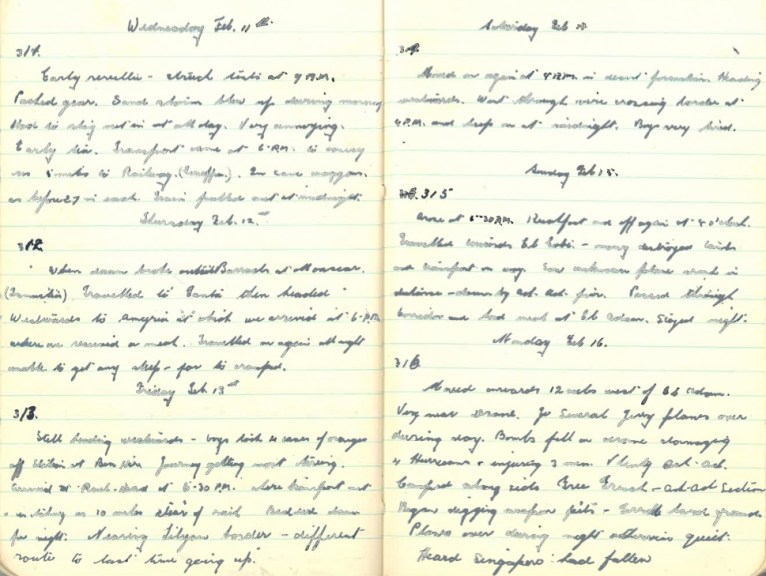 Wednesday Feb. 11th.
311.
Early reveille - struck tents at 9 A.M.
Packed gear. Sand storm blew up during morning
Had to stay out in it all day. Very annoying.
Early tea. Transport came at 6 P.M. to convey
us 5 miles to Railway. In cane waggons
as before 27 in each. Train pulled out at midnight.
Thursday Feb. 12th
312.
When dawn broke outside Barracks at Moascar.
(Ismailia) Travelled to Tanta then headed
Westwards to Amyria at which we arrived at 6 P.M.
where we received a meal. Travelled on again all night
unable to get any sleep - far to cramped.
Friday Feb 13th
313.
Still heading westwards - boys took cases of oranges
off Station at Journey getting most tiring.
Arrived at Rail-Head at 5-30 P.M. where transport met
us taking us 10 miles clear of rail Bedded down
for night. Nearing Libyan border - different
route to last time going up.
Saturday Feb 14
314.
Moved on again at in desert formation Heading
westwards. Went through wire crossing border at
4 P.M. and kept on at midnight. Boys very tired.
Sunday Feb 15.
315
Arose at 6-30 A.M. Breakfast and off again at 8 o'clock.
Travelled towards El Gobi - many destroyed tanks
and transport on way. Saw unknown plane crash in
distance - down by ack. ack. fire. Passed through
corridor and had meal at El Adam. Stayed night.
Monday Feb 16.
316
Moved onwards 12 miles west of El Adam.
Very near Drome. Several Jerry planes over
during day. Bombs fell on drome damaging
4 Hurricanes & injuring 3 men. Plenty ack-ack.
Camped along side Free French - ack-ack Section
Began digging weapon pits - hard ground
Planes over during night otherwise quiet.
Heard Singapore had fallen